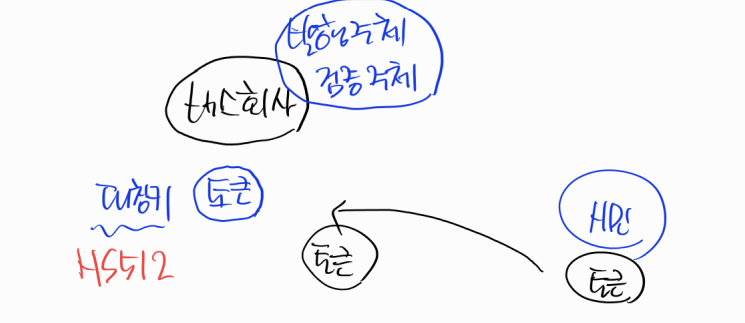 발행주체
검증주체
버스회사
대칭키
토큰
HS512
토큰
시민
토큰